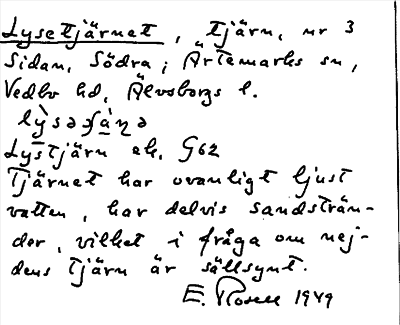 Lysetjärnet, tjärn, nr 3
Sidan, Södra; Ärtemarks sn,
Vedbo hd, Älvsborgs l.
Lystjärn ek. G62
Tjärnet har ovanligt ljust
vatten, har delvis sandsträn-
der, vilket i fråga om nej-
dens tjärn är sällsynt.
E. Rosell 1949